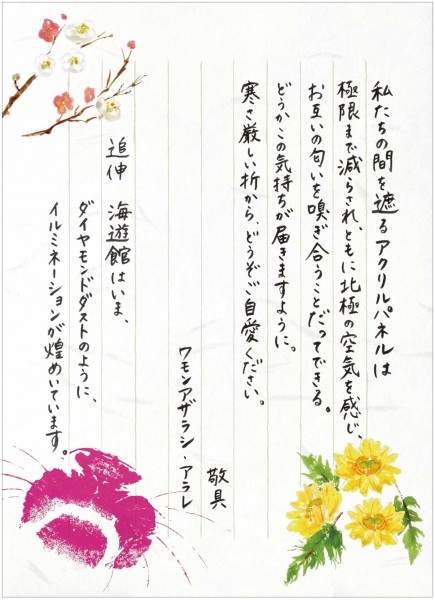 私たちの間を遮るアクリルパネルは
極限まで減らされ、ともに北極の空気を感じ、
お互いの匂いを嗅ぎ合うことだってできる。
どうかこの気持ちが届きますように。
寒さ厳しい折から、どうぞご自愛ください。
敬具
ワモンアザラシ・アラレ
追伸 海遊館はいま、
ダイヤモンドダストのように、
イルミネーションが煌めいています。